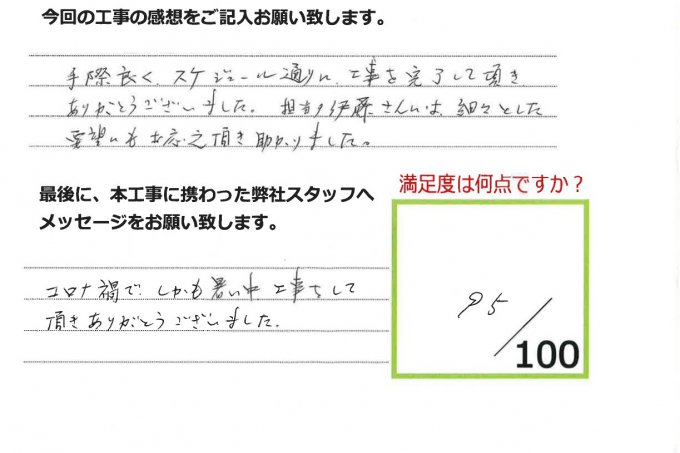 今回の工事の感想をご記入お願い致します。
手際良く、スケジュール通りに、工事を完了して頂き
ありがとうございました。担当の伊藤さんには、細々とした
要望にもお応え頂き助かりました。
最後に、本工事に携わった弊社スタッフへ
メッセージをお願い致します。
満足度は何点ですか？
コロナ禍で、しかも暑い中、工事をして
頂きありがとうございました。
95/100